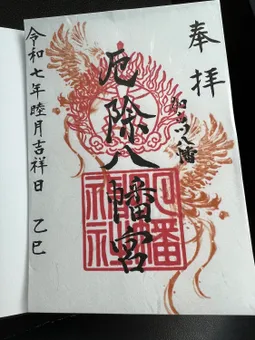 奉拝
加古川八幡
厄除八幡宮
八幡神社
令和七年睦月吉祥日 乙巳